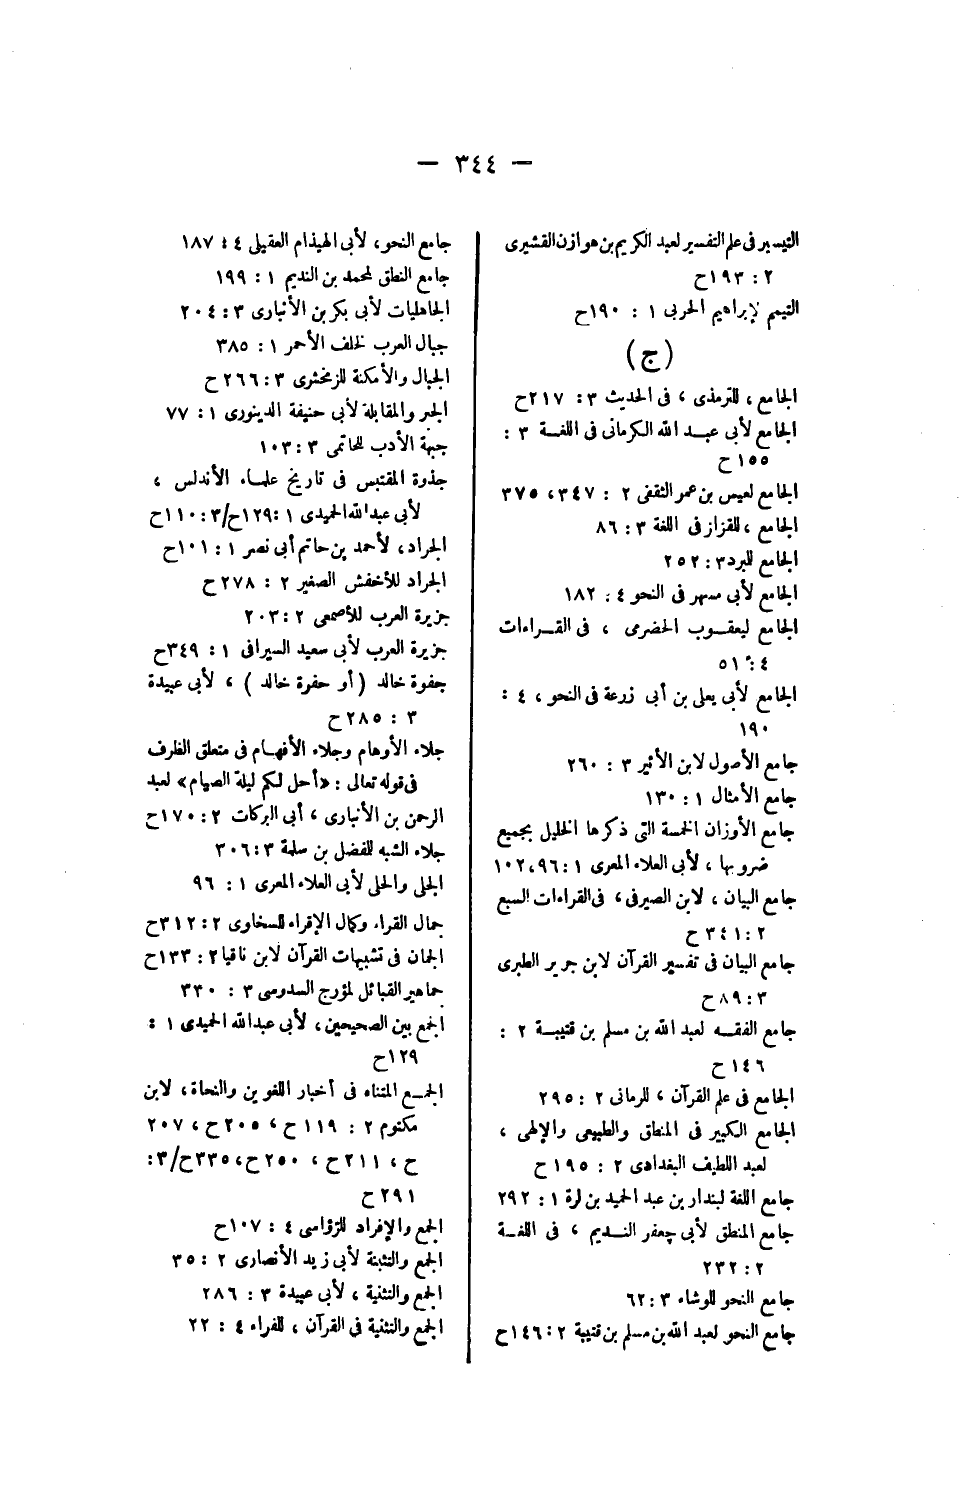 — ٣٤٤ —
التيسير فى علم التفسير لعبد الكريم بن هوازن القشيرى
٢ : ١٩٣ح
التيمم لإبراهيم الحربى ١ : ١٩٠ح
(ج)
الجامع ، للترمذى ، فى الحديث ٣ : ٢١٧ح
الجامع لأبى عبد الله الكرمانى فى اللغة ٣ :
١٥٥ح
الجامع لعيس بن عمر الثقفى ٢ : ٣٤٧، ٣٧٥
الجامع ، للقزاز فى اللغة ٣ : ٨٦
الجامع للمبرد ٣ : ٢٥٢
الجامع لأبى مسهر فى النحو ٤ : ١٨٢
الجامع ليعقوب الحضرمى ، فى القراءات
٤ : ٥١
الجامع لأبى يعلى بن أبى زرعة فى النحو ، ٤ :
١٩٠
جامع الأصول لابن الأثير ٣ : ٢٦٠
جامع الأمثال ١ : ١٣٠
جامع الأوزان الخمسة التى ذكرها الخليل بجميع
ضروبها ، لأبى العلاء المعرى ١ : ٩٦، ١٠٢
جامع البيان ، لابن الصيرفى ، فى القراءات السبع
٢ : ٣٤١ح
جامع البيان فى تفسير القرآن لابن جرير الطبرى
٣ : ٨٩ح
جامع الفقه لعبد الله بن مسلم بن قتيبة ٢ :
١٤٦ح
الجامع فى علم القرآن ، للرمانى ٢ : ٢٩٥
الجامع الكبير فى المنطق والطبيعى والإلهى ،
لعبد اللطيف البغدادى ٢ : ١٩٥ح
جامع اللغة لبندار بن عبد الحميد بن لرة ١ : ٢٩٢
جامع المنطق لأبى جعفر النديم ، فى اللغة
٢ : ٢٣٢
جامع النحو للوشاء ٣ : ٦٢
جامع النحو لعبد الله بن مسلم بن قتيبة ٢ : ١٤٦ح
جامع النحو، لأبى الهيذام العقيلى ٤ : ١٨٧
جامع النطق لمحمد بن النديم ١ : ١٩٩
الجاهليات لأبى بكر بن الأنبارى ٣ : ٢٠٤
جبال العرب لخلف الأحمر ١ : ٣٨٥
الجبال والأمكنة للزمخشرى ٣ : ٢٦٦ح
الجبر والمقابلة لأبى حنيفة الدينورى ١ : ٧٧
جبهة الأدب للحاتمى ٣ : ١٠٣
جذوة المقتبس فى تاريخ علماء الأندلس ،
لأبى عبد الله الحميدى ١ : ١٢٩ح/٣ : ١١٠ح
الجراد، لأحمد بن حاتم أبى نصر ١ : ١٠١ح
الجراد للأخفش الصغير ٢ : ٢٧٨ح
جزيرة العرب للأصمعى ٢ : ٢٠٣
جزيرة العرب لأبى سعيد السيرافى ١ : ٣٤٩ح
جفوة خالد ( أو حفرة خالد ) ، لأبى عبيدة
٣ : ٢٨٥ح
جلاء الأوهام وجلاء الأفهام فى متعلق الظرف
فى قوله تعالى : «أحل لكم ليلة الصيام» لعبد
الرحمن بن الأنبارى ، أبى البركات ٢ : ١٧٠ح
جلاء الشبه للفضل بن سلمة ٣ : ٣٠٦
الجلى والحلى لأبى العلاء المعرى ١ : ٩٦
جمال القراء وكمال الإقراء للسخاوى ٢ : ٣١٢ح
الجمان فى تشبيهات القرآن لابن ناقيا ٢ : ١٣٣ح
جماهير القبائل لمؤرج السدوسى ٣ : ٣٣٠
الجمع بين الصحيحين ، لأبى عبد الله الحميدى ١ :
١٢٩ح
الجمع المتناه فى أخبار اللغوين والنحاة ، لابن
مكتوم ٢ : ١١٩ ح ، ٢٠٥ ح ، ٢٠٧
ح ، ٢١١ح ، ٢٥٠ح ، ٣٣٥ح/٣ :
٢٩١ح
الجمع والإفراد للرؤاسى ٤ : ١٠٧ح
الجمع والتثنية لأبى زيد الأنصارى ٢ : ٣٥
الجمع والتثنية ، لأبى عبيدة ٣ : ٢٨٦
الجمع والتثنية فى القرآن ، للفراء ٤ : ٢٢